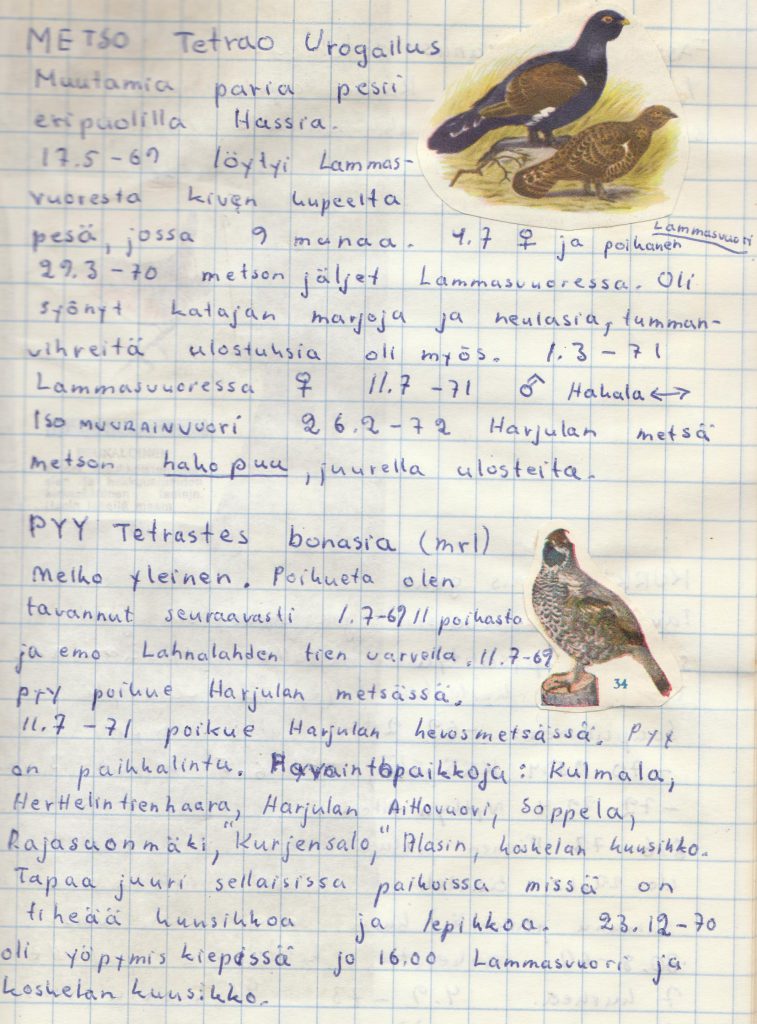 METSO Tetrao Urogallus
Muutamia paria pesii
eripuolilla Hassia.
17.5-69 löytyi Lammas-
vuoresta kiven kupeelta
pesä, jossa 9 munaa. 1.7 ♀ ja poikanen Lammasvuori
29.3-70 metson jäljet Lammasvuoressa. Oli
syönyt katajan marjoja ja neulasia, tumman-
vihreitä ulostuksia oli myös. 1.3-71
Lammasvuoressa ♀ 11.7-71 ♂ Hakala ↔
ISO MUURAINVUORI 26.2-72 Harjulan metsä
metson hakopuu, juurella ulosteita.
PYY Tetrastes bonasia (mrl)
Melko yleinen. Poikueta olen
tavannut seuraavasti 1.7-69 11 poikasta
ja emo Lahnalahden tien varvella. 11.7-69
pyy poikue Harjulan metsässä.
11.7-71 poikue Harjulan hevosmetsässä. Pyy
on paikkalintu. Havaintopaikkoja: Kulmala,
Herttelintienhaara, Harjulan Aittovuori, Soppela,
Rajasuonmäki, "Kurjensalo," Alasin, koskelan kuusikko.
Tapaa juuri sellaisissa paikoissa missä on
tiheää kuusikkoa ja lepikkoa. 23.12-70
oli yöpymis kiepissä jo 16.00 Lammasvuori ja
koskelan kuusikko.
34